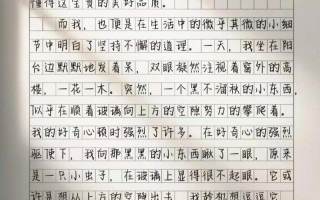 懂得这宝贵的美好品质。
而我，也便是在生活中的微乎其微的小细
节中明白了坚持不懈的道理。一天，我坐在阳
台边默默地发着呆，双眼凝然注视着窗外的高
楼，一花一木。突然，一个黑不溜秋的小东西，
似乎在顺着玻璃向上方的空隙努力的攀爬着。
我的好奇心顿时强烈了许多。在好奇心的强烈
驱使下，我向那黑黑的小东西瞅了一眼，原来
是一只小虫子，在玻璃上显得很不起眼。它或
许是想从上方的空隙出去，我趁机想逗逗它，